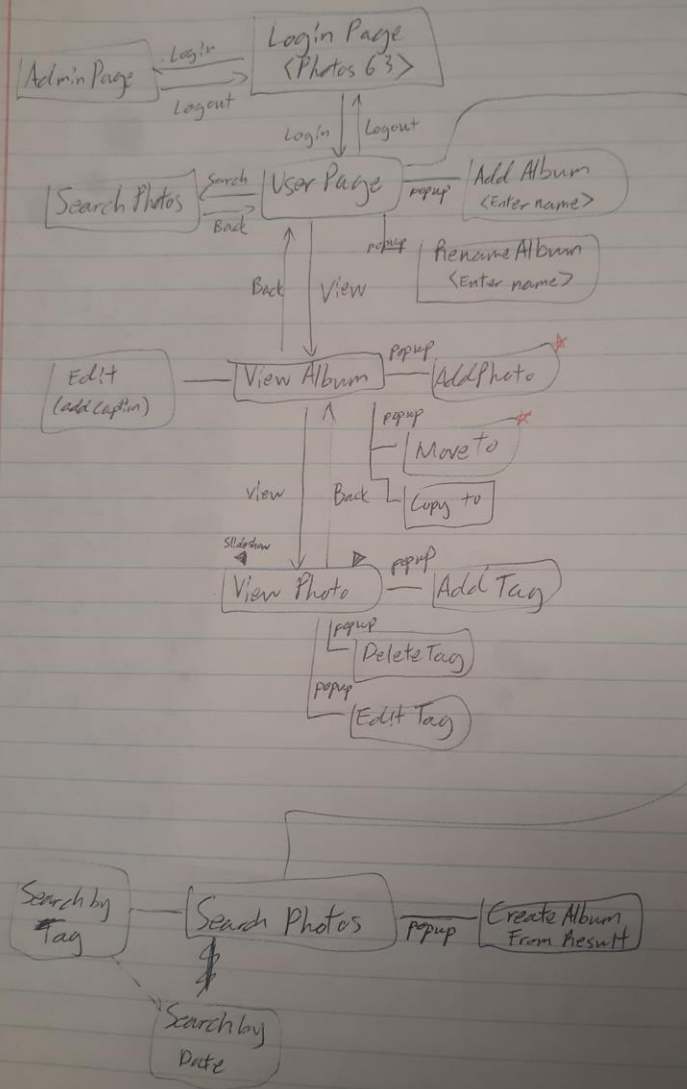 Login Page
<Photos 63>
Login
Admin Page
Logout
Login
Logout
User Page
Search
Back
Search Photos
popup
Add Album
<Enter name>
popup
Rename Album
<Enter name>
Back
View
Edit
(add caption)
View Album
Popup
Add Photo
popup
Move to
Copy to
View
Back
Slideshow
View Photo
popup
Add Tag
popup
Delete Tag
popup
Edit Tag
Search by
Tag
Search Photos
popup
Create Album
From Result
Search by
Date